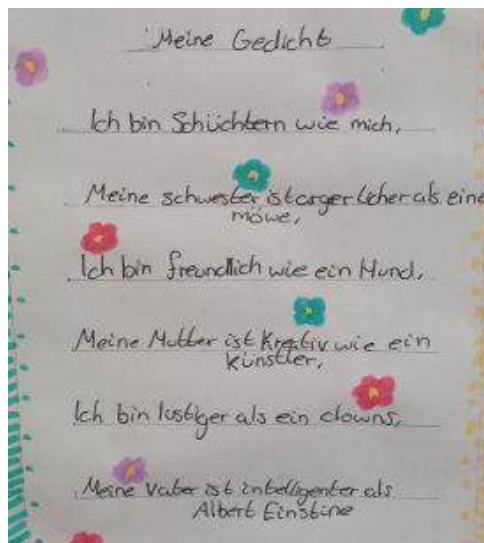 Meine Gedicht
Ich bin Schüchtern wie mich,
Meine schwester ist argerlicher als eine
möwe,
Ich bin freundlich wie ein Hund,
Meine Mutter ist kreativ wie ein
künstler,
Ich bin lustiger als ein clowns,
Meine Vater ist intelligenter als
Albert Einstine